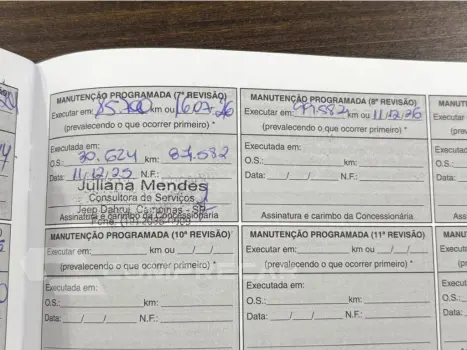 MANUTENÇÃO PROGRAMADA (7ª REVISÃO)
Executar em: km ou 16.07.26
(prevalecendo o que ocorrer primeiro) *
Executada em:
O.S.: 30.624 km: 87.582
Data: 11/12/25 N.F.:
Juliana Mendes
Consultora de Serviços
Jeep Dahruj Campinas - SP
Assinatura e carimbo da Concessionária
MANUTENÇÃO PROGRAMADA (8ª REVISÃO)
Executar em: 99.582 km ou 11/12/26
(prevalecendo o que ocorrer primeiro) *
Executada em:
O.S.: km:
Data: / / N.F.:
Assinatura e carimbo da Concessionária.
MANUT
Executar
(p
Executa
O.S.:
Data:
Assin
MANUTENÇÃO PROGRAMADA (10ª REVISÃO)
Executar em: km ou / /
(prevalecendo o que ocorrer primeiro) *
Executada em:
O.S.: km:
Data: / / N.F.:
MANUTENÇÃO PROGRAMADA (11ª REVISÃO)
Executar em: km ou / /
(prevalecendo o que ocorrer primeiro) *
Executada em:
O.S.: km:
Data: / / N.F.:
MANUT